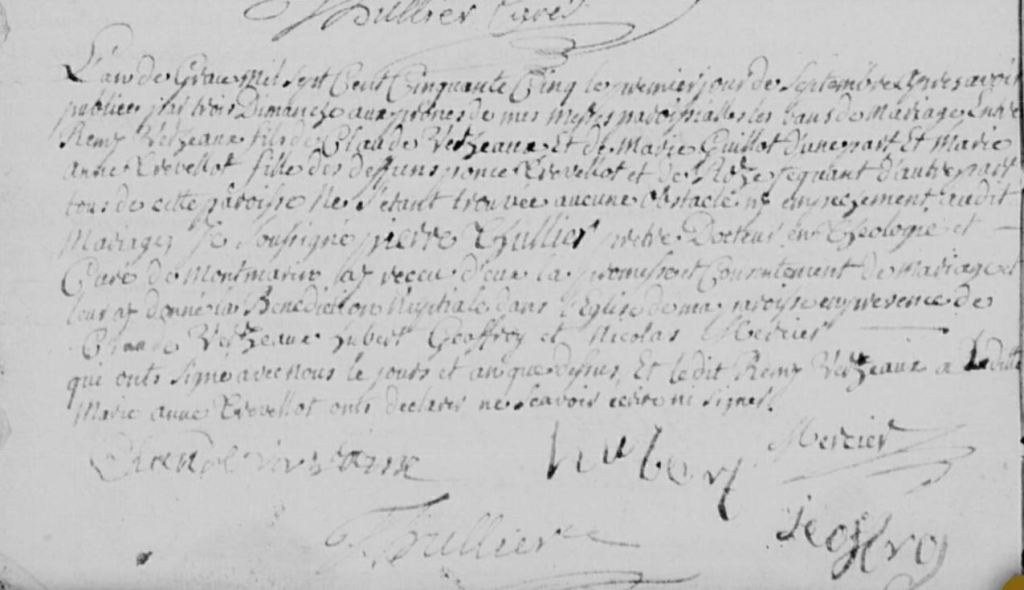 Thullier Curé
L'an de Grace Mil sept Cent Cinquante Cinq le premier jour de Septembre apres avoir
publiée par trois Dimanche aux prones de mes Messes paroissialles les bans de Mariage Entre
Remy Verzeaux fils de Claude Verzeaux Et de Marie Guillot d'une part Et Marie
anne Trevellot fille des deffuns ponce Trevellot et de Roze sequant d'autre part
tous de cette paroisse Ne s'etant trouvée aucune obstacle ny empechement audit
Mariage, Je soussigné pierre Thullier pretre Docteur en Theologie et
Curé de Montmarin ay receu d'eux la promesse et Consentement de Mariage et
leur ay donné la Benediction Nuptiale dans l'Eglise de ma paroisse en presence de
Claude Verzeaux hubert Geoffroy et Nicolas Mercier
qui onts signé avec nous le jours et an que dessus, Et le dit Remy Verzeaux a Laditte
Marie anne Trevellot onts declarés ne scavoir ecrire ni signer.
Claude verzeaux
hubert
Mercier
Thullier
Jeoffroy